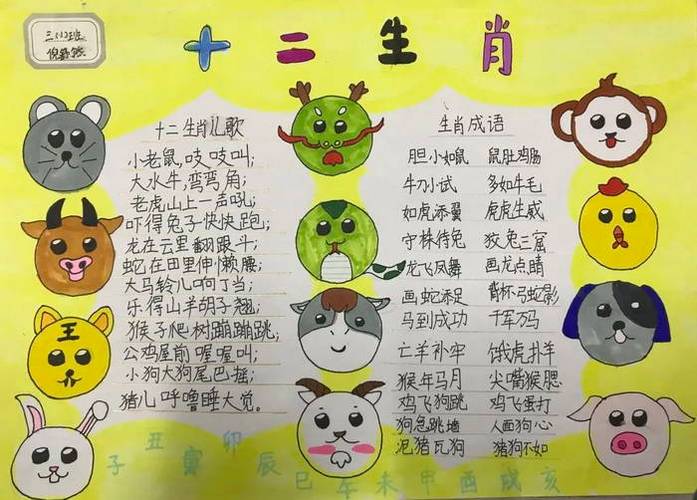 三(1)班
十二生肖
十二生肖儿歌
小老鼠,吱吱叫;
大水牛,弯弯角;
老虎山上一声吼;
吓得兔子快快跑;
龙在云里翻跟斗;
蛇在田里伸懒腰;
大马铃儿响叮当;
乐得山羊胡子翘;
猴子爬树蹦蹦跳;
公鸡屋前喔喔叫;
小狗大狗尾巴摇;
猪儿呼噜睡大觉。
生肖成语
胆小如鼠 鼠肚鸡肠
牛刀小试 多如牛毛
如虎添翼 虎虎生威
守株待兔 狡兔三窟
龙飞凤舞 画龙点睛
画蛇添足 背杯弓蛇影
马到成功 千军万马
亡羊补牢 饿虎扑羊
猴年马月 尖嘴猴腮
鸡飞狗跳 鸡飞蛋打
狗急跳墙 人面狗心
泥猪瓦狗 猪狗不如
王
子丑寅卯辰巳午未申酉戌亥